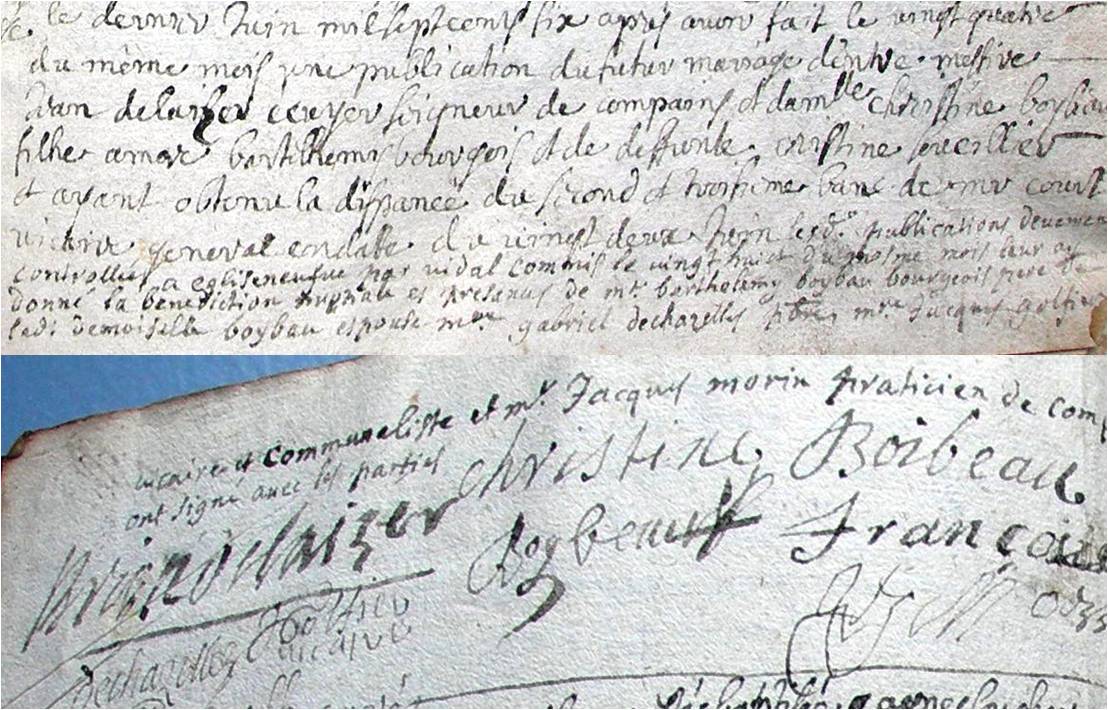 le dernier Juin mil sept cents six après avoir fait le vingt quatre
du même mois une publication du futur mariage d'entre messire
Jean delaizer écuyer seigneur de compains et damlle christine boybau
fille amre barthelemy bourgois et de deffunte cristine
et ayant obtenu la dispance du second et troisieme banc de mr court
vicaire general en datte du vingt deux Juin lesd. publications deuement
controllées a egliseneufve par vidal commis le vingt huict du mesme mois leur ay
donné la bénédiction nuptiale es presances de mr. barthelemy boybau bourgeois pere de
lad. demoiselle boybau espouse mre gabriel dechazelles mre Jacques golfier
vicaire et communaliste et mr. Jacques morin praticien de comp
ont signé avec les parties
christine Boibeau
delaizer
Boybeau Francois
dechazelles Golfier
vicaire